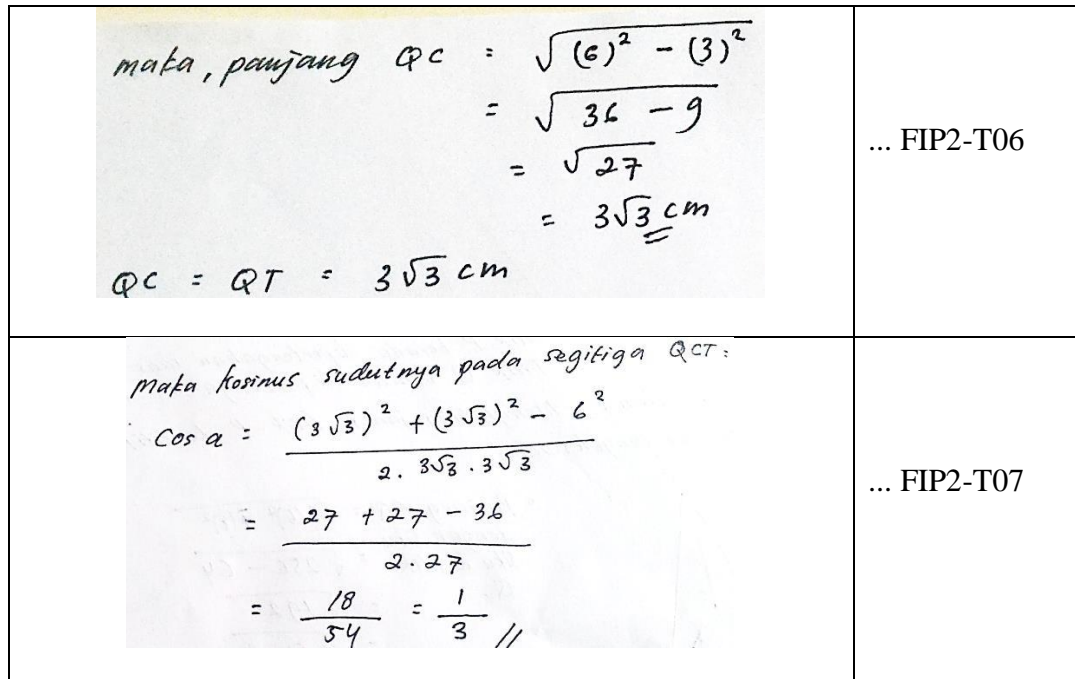 maka, panjang QC = √(6)² - (3)²
= √36 - 9
= √27
= 3√3 cm
QC = QT = 3√3 cm
... FIP2-T06
maka kosinus sudutnya pada segitiga QCT:
Cos a = (3√3)² + (3√3)² - 6²
2. 3√3 . 3√3
= 27 + 27 - 36
2.27
= 18/54 = 1/3 //
... FIP2-T07